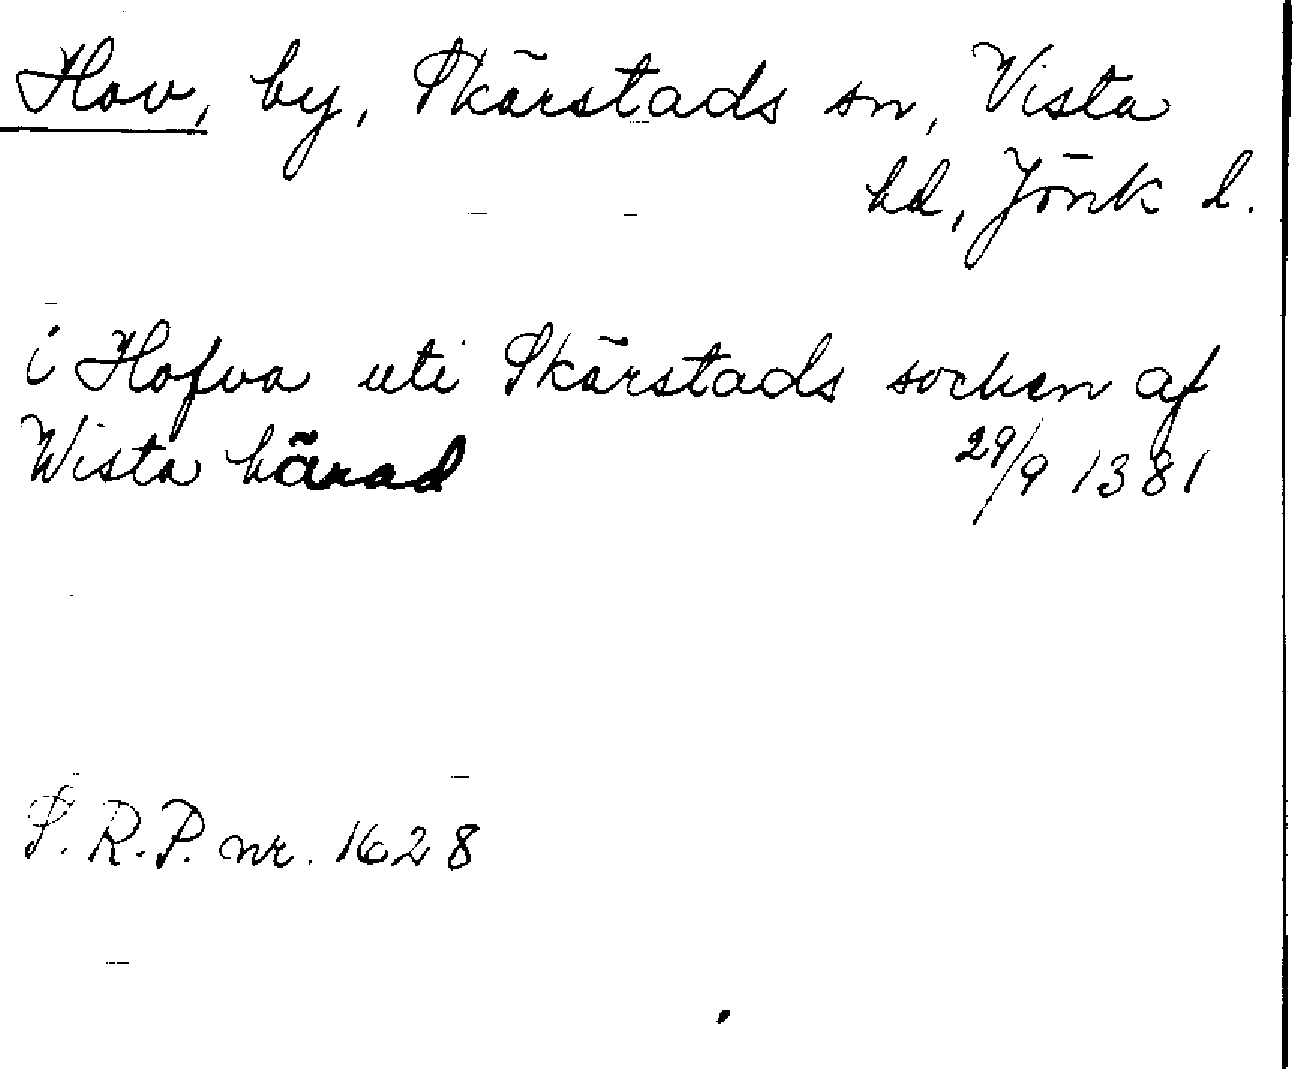 Hov, by, Skärstads sn, Vista
hd, Jönk l.
i Hofva uti Skärstads socken af
Wista härad 29/9 1381
S.R.P. nr. 1628